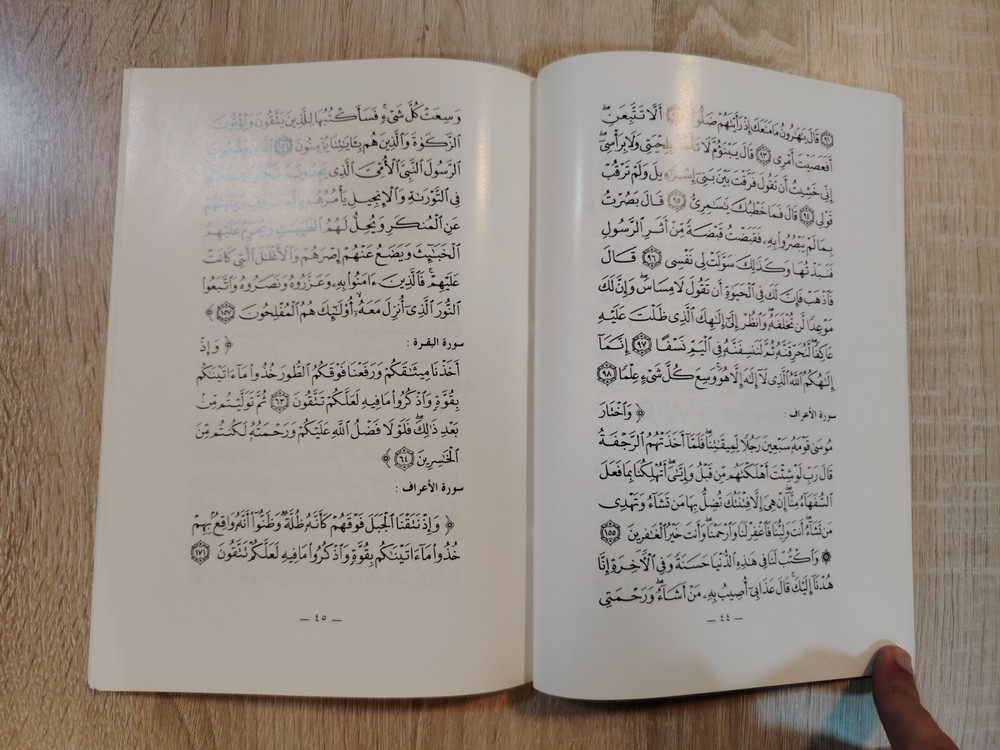 ﴿٩١﴾ قَالَ يَهَٰرُونُ مَا مَنَعَكَ إِذْ رَأَيْتَهُمْ ضَلُّوٓا۟ ﴿٩٢﴾ أَلَّا تَتَّبِعَنِ ۖ
أَفَعَصَيْتَ أَمْرِى ﴿٩٣﴾ قَالَ يَبْنَؤُمَّ لَا تَأْخُذْ بِلِحْيَتِى وَلَا بِرَأْسِىٓ ۖ
إِنِّى خَشِيتُ أَن تَقُولَ فَرَّقْتَ بَيْنَ بَنِىٓ إِسْرَٰٓءِيلَ وَلَمْ تَرْقُبْ
قَوْلِى ﴿٩٤﴾ قَالَ فَمَا خَطْبُكَ يَٰسَٰمِرِىُّ ﴿٩٥﴾ قَالَ بَصُرْتُ
بِمَا لَمْ يَبْصُرُوا۟ بِهِۦ فَقَبَضْتُ قَبْضَةً مِّنْ أَثَرِ ٱلرَّسُولِ
فَنَبَذْتُهَا وَكَذَٰلِكَ سَوَّلَتْ لِى نَفْسِى ﴿٩٦﴾ قَالَ
فَٱذْهَبْ فَإِنَّ لَكَ فِى ٱلْحَيَوٰةِ أَن تَقُولَ لَا مِسَاسَ ۖ وَإِنَّ لَكَ
مَوْعِدًا لَّن تُخْلَفَهُۥ ۖ وَٱنظُرْ إِلَىٰٓ إِلَٰهِكَ ٱلَّذِى ظَلْتَ عَلَيْهِ
عَاكِفًا ۖ لَّنُحَرِّقَنَّهُۥ ثُمَّ لَنَنسِفَنَّهُۥ فِى ٱلْيَمِّ نَسْفًا ﴿٩٧﴾ إِنَّمَآ
إِلَٰهُكُمُ ٱللَّهُ ٱلَّذِى لَآ إِلَٰهَ إِلَّا هُوَ ۚ وَسِعَ كُلَّ شَىْءٍ عِلْمًا ﴿٩٨﴾
سورة الأعراف : ﴿ وَٱخْتَارَ
مُوسَىٰ قَوْمَهُۥ سَبْعِينَ رَجُلًا لِّمِيقَٰتِنَا ۖ فَلَمَّآ أَخَذَتْهُمُ ٱلرَّجْفَةُ
قَالَ رَبِّ لَوْ شِئْتَ أَهْلَكْتَهُم مِّن قَبْلُ وَإِيَّٰىَ ۖ أَتُهْلِكُنَا بِمَا فَعَلَ
ٱلسُّفَهَآءُ مِنَّآ ۖ إِنْ هِىَ إِلَّا فِتْنَتُكَ تُضِلُّ بِهَا مَن تَشَآءُ وَتَهْدِى
مَن تَشَآءُ ۖ أَنتَ وَلِيُّنَا فَٱغْفِرْ لَنَا وَٱرْحَمْنَا ۖ وَأَنتَ خَيْرُ ٱلْغَٰفِرِينَ ﴿١٥٥﴾
۞ وَٱكْتُبْ لَنَا فِى هَٰذِهِ ٱلدُّنْيَا حَسَنَةً وَفِى ٱلْءَاخِرَةِ إِنَّا
هُدْنَآ إِلَيْكَ ۚ قَالَ عَذَابِىٓ أُصِيبُ بِهِۦ مَنْ أَشَآءُ ۖ وَرَحْمَتِى
— ٤٤ —
وَسِعَتْ كُلَّ شَىْءٍ ۚ فَسَأَكْتُبُهَا لِلَّذِينَ يَتَّقُونَ وَيُؤْتُونَ
ٱلزَّكَوٰةَ وَٱلَّذِينَ هُم بِـَٔايَٰتِنَا يُؤْمِنُونَ ﴿١٥٦﴾ ٱلَّذِينَ يَتَّبِعُونَ
ٱلرَّسُولَ ٱلنَّبِىَّ ٱلْأُمِّىَّ ٱلَّذِى يَجِدُونَهُۥ مَكْتُوبًا عِندَهُمْ
فِى ٱلتَّوْرَىٰةِ وَٱلْإِنجِيلِ يَأْمُرُهُم بِٱلْمَعْرُوفِ وَيَنْهَىٰهُمْ
عَنِ ٱلْمُنكَرِ وَيُحِلُّ لَهُمُ ٱلطَّيِّبَٰتِ وَيُحَرِّمُ عَلَيْهِمُ
ٱلْخَبَٰٓئِثَ وَيَضَعُ عَنْهُمْ إِصْرَهُمْ وَٱلْأَغْلَٰلَ ٱلَّتِى كَانَتْ
عَلَيْهِمْ ۚ فَٱلَّذِينَ ءَامَنُوا۟ بِهِۦ وَعَزَّرُوهُ وَنَصَرُوهُ وَٱتَّبَعُوا۟
ٱلنُّورَ ٱلَّذِىٓ أُنزِلَ مَعَهُۥٓ ۙ أُو۟لَٰٓئِكَ هُمُ ٱلْمُفْلِحُونَ ﴿١٥٧﴾ ﴾
سورة البقرة : ﴿ وَإِذْ
أَخَذْنَا مِيثَٰقَكُمْ وَرَفَعْنَا فَوْقَكُمُ ٱلطُّورَ خُذُوا۟ مَآ ءَاتَيْنَٰكُم
بِقُوَّةٍ وَٱذْكُرُوا۟ مَا فِيهِ لَعَلَّكُمْ تَتَّقُونَ ﴿٦٣﴾ ثُمَّ تَوَلَّيْتُم مِّنۢ
بَعْدِ ذَٰلِكَ ۖ فَلَوْلَا فَضْلُ ٱللَّهِ عَلَيْكُمْ وَرَحْمَتُهُۥ لَكُنتُم مِّنَ
ٱلْخَٰسِرِينَ ﴿٦٤﴾ ﴾
سورة الأعراف :
﴿ وَإِذْ نَتَقْنَا ٱلْجَبَلَ فَوْقَهُمْ كَأَنَّهُۥ ظُلَّةٌ وَظَنُّوٓا۟ أَنَّهُۥ وَاقِعٌۢ بِهِمْ
خُذُوا۟ مَآ ءَاتَيْنَٰكُم بِقُوَّةٍ وَٱذْكُرُوا۟ مَا فِيهِ لَعَلَّكُمْ تَتَّقُونَ ﴿١٧١﴾
— ٤٥ —